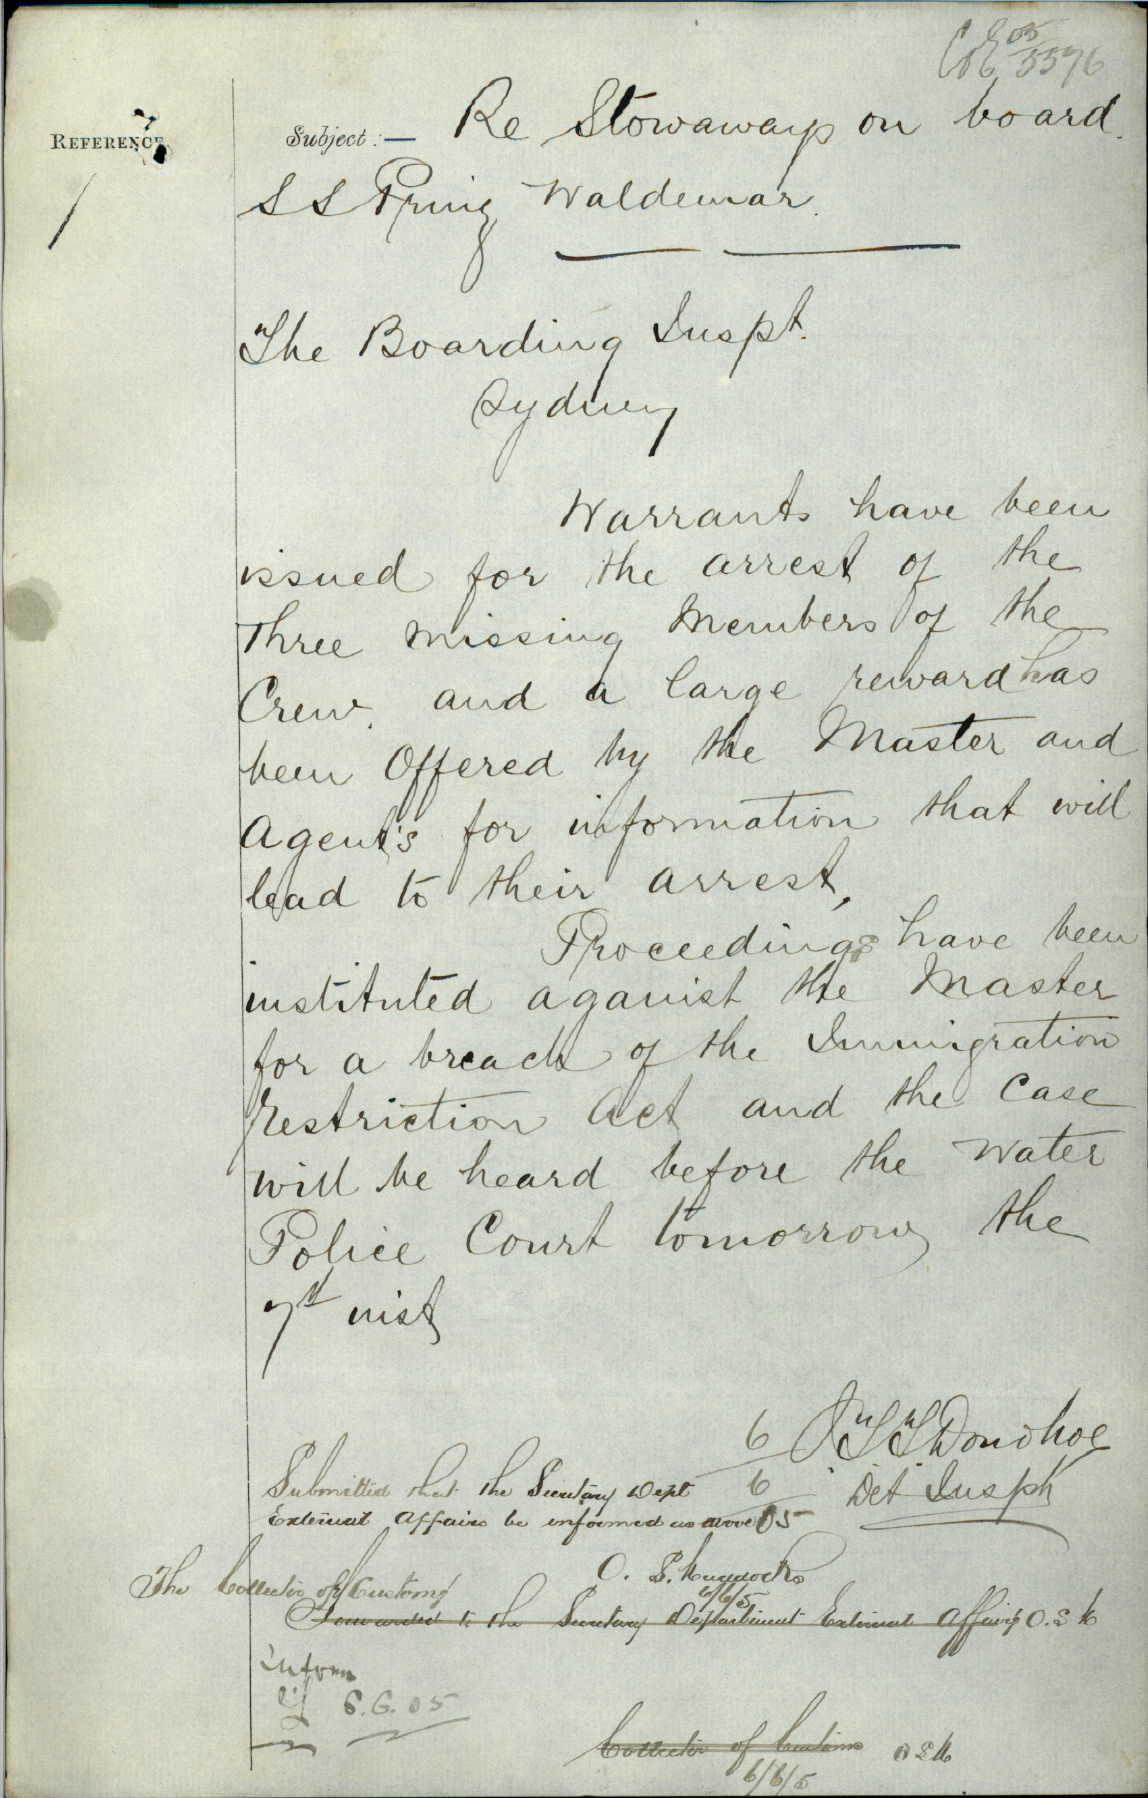 05/5576
REFERENCE
Subject:— Re Stowaways on board.
S S Prinz Waldemar.
The Boarding Inspt.
Sydney
Warrants have been
issued for the arrest of the
Three missing Members of the
Crew. and a large reward has
been Offered by the Master and
Agent's for information that will
lead to their arrest,
Proceedings have been
instituted aganist the Master
for a breach of the Immigration
Restriction Act and the Case
will be heard before the Water
Police Court tomorrow the
7th inst
6 Donohoe
Submitted that the Secretary Dept 6 Det Inspt
External Affairs be informed as above 05
The Collector of Customs
6/6/5
Forwarded to the Secretary Department External Affairs O.S M
Inform
6.6.05
Collector of Customs O S M
6/6/5